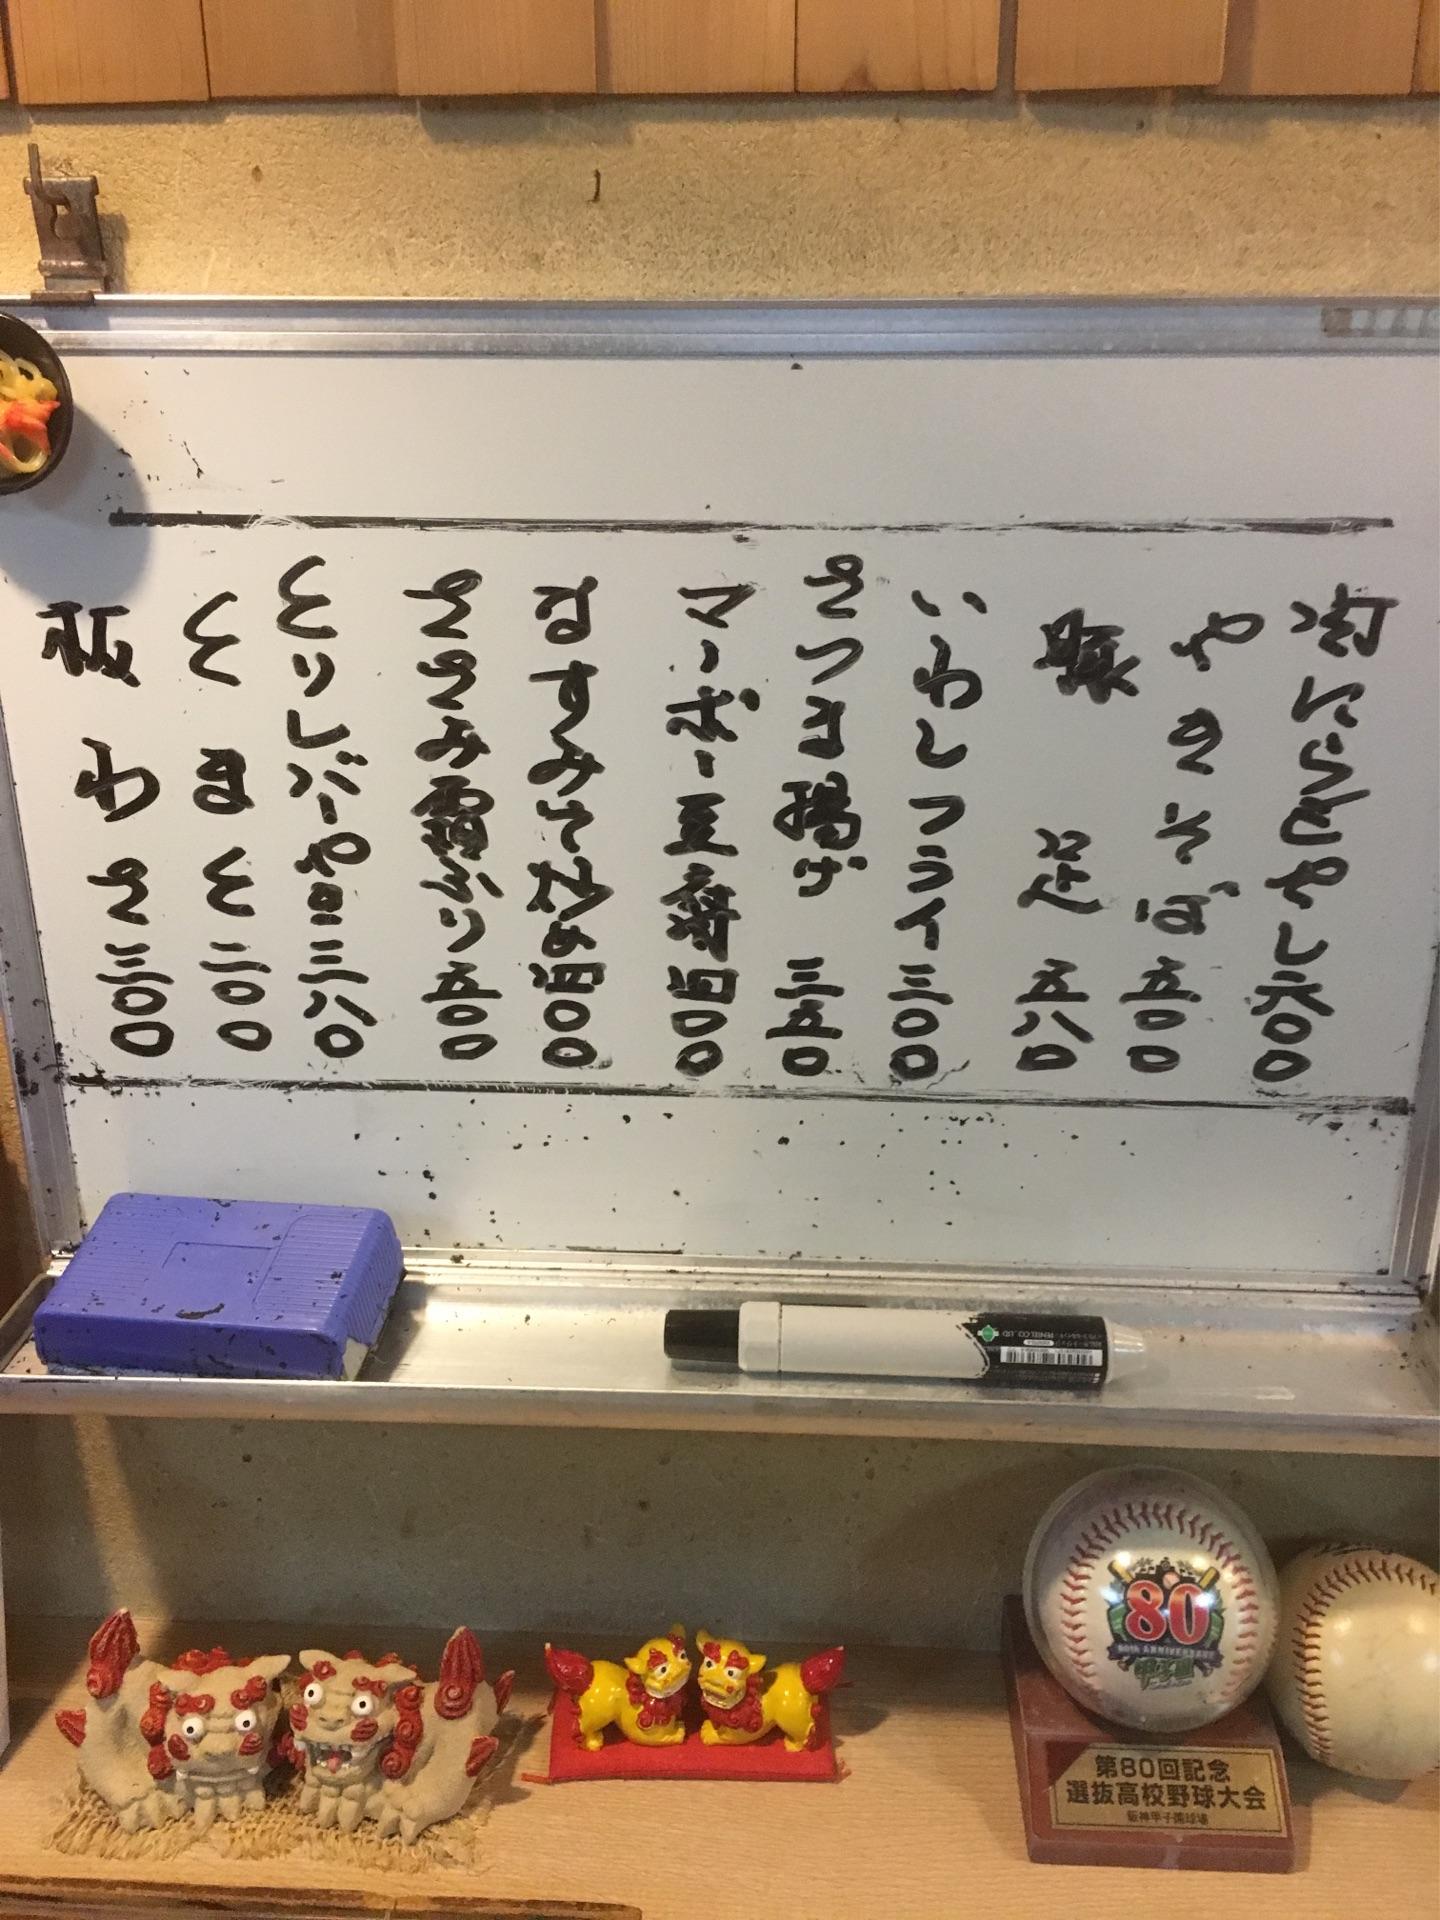 にらもやし六〇〇
やきそば五〇〇
豚足 五八〇
いわしフライ三〇〇
さつま揚げ 三五〇
マーボー豆腐四〇〇
なすみそ炒め四〇〇
ささみ霜ふり五〇〇
とりレバーやき三八〇
とまと三〇〇
板わさ三〇〇
PENTEL CO., LTD.
80
80th ANNIVERSARY
甲子園
第80回記念
選抜高校野球大会
阪神甲子園球場